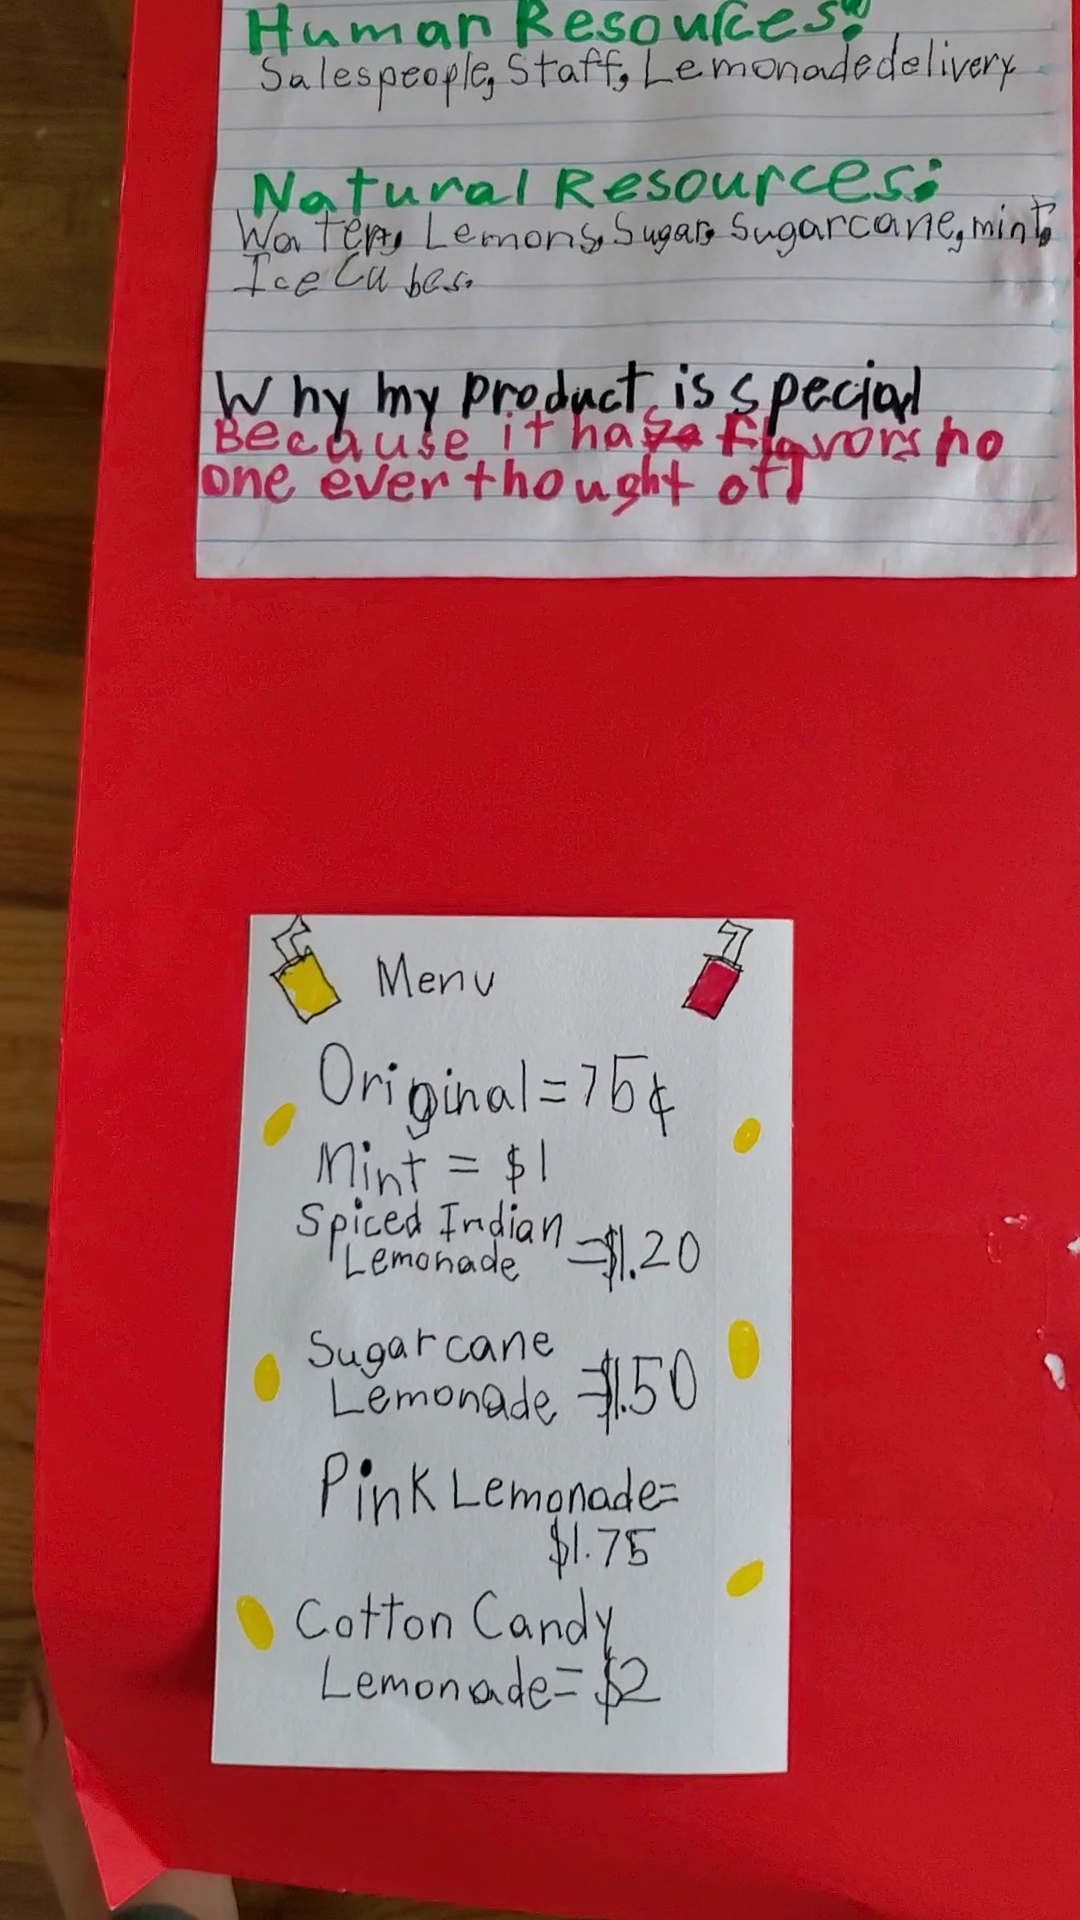 Human Resources:
Salespeople, Staff, Lemonade delivery
Natural Resources:
Water, Lemons, Sugar, Sugarcane, mint,
Ice Cubes.
Why my product is special
Because it has Flavors no
one ever thought of
Menu
Original = 75¢
Mint = $1
Spiced Indian
Lemonade = $1.20
Sugarcane
Lemonade = $1.50
Pink Lemonade =
$1.75
Cotton Candy
Lemonade = $2